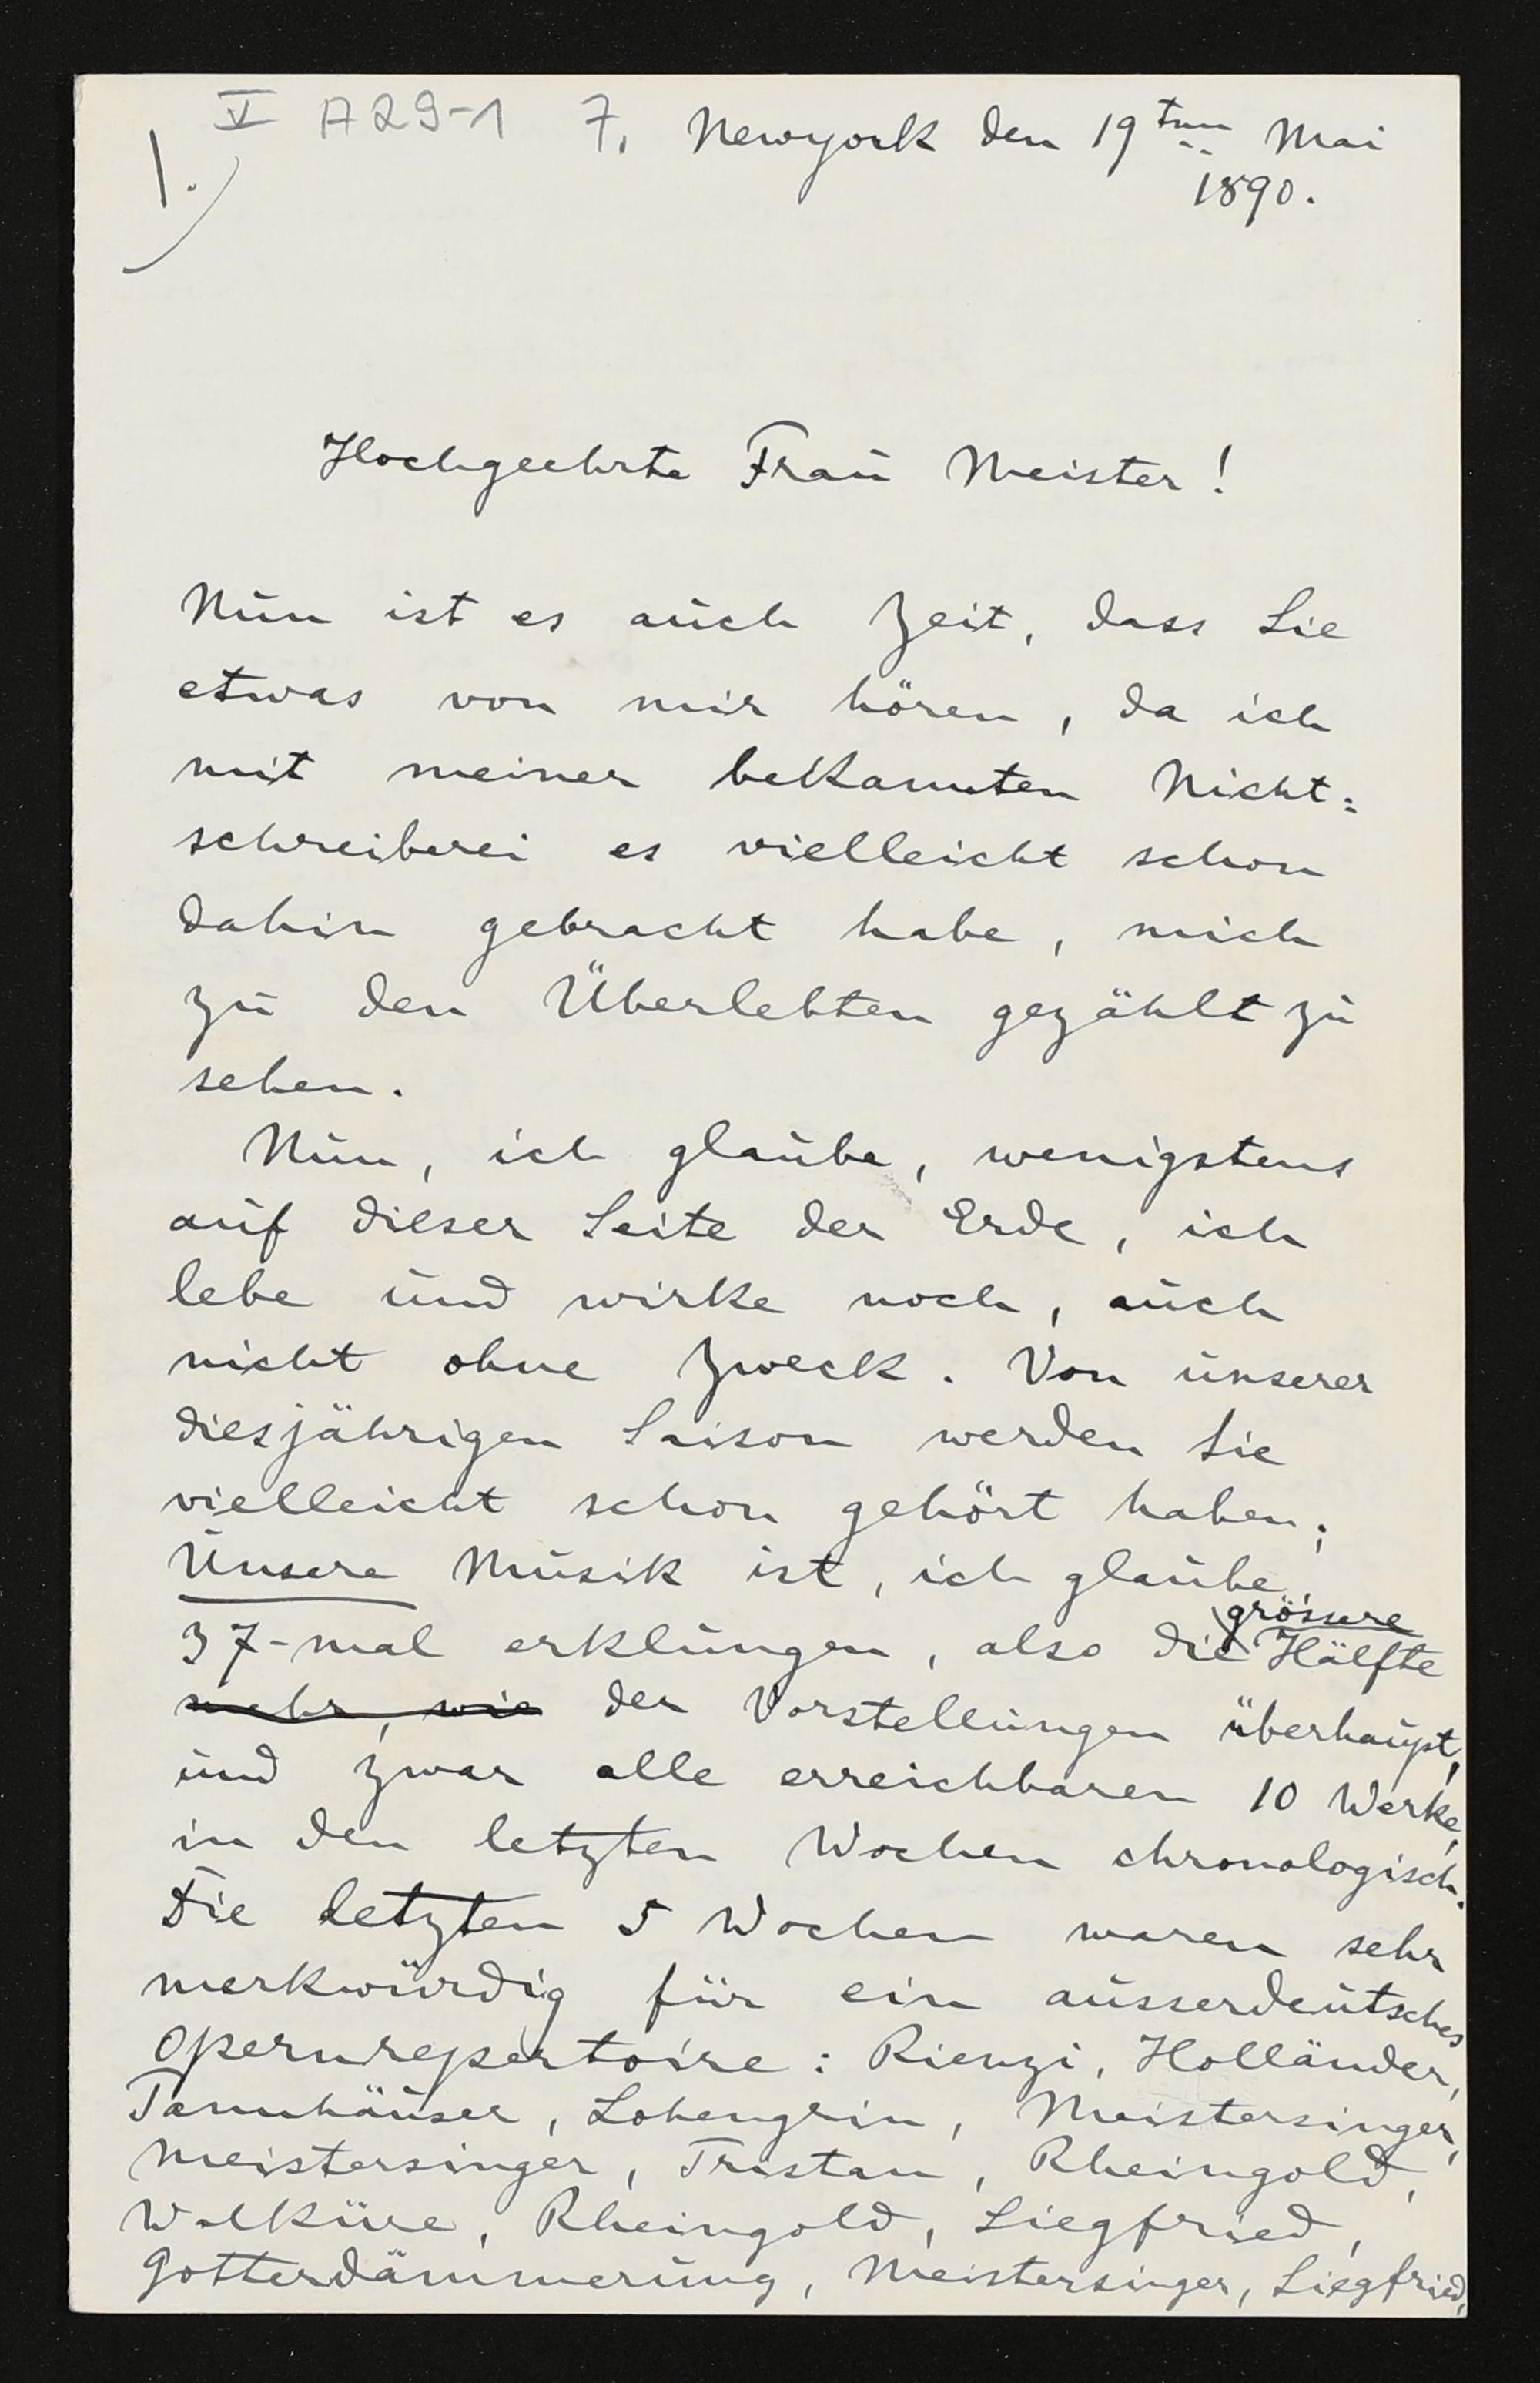 V A29-1 7, Newyork den 19ten Mai
1.) 1890.
Hochgeehrte Frau Meister!
Nun ist es auch Zeit, dass Sie
etwas von mir hören, da ich
mit meiner bekannten Nicht=
schreiberei es vielleicht schon
dahin gebracht habe, mich
zu den Überlebten gezählt zu
sehen.
Nun, ich glaube, wenigstens
auf dieser Seite der Erde, ich
lebe und wirke noch, auch
nicht ohne Zweck. Von unserer
diesjährigen Saison werden Sie
vielleicht schon gehört haben;
Unsere Musik ist, ich glaube,
grössere
37-mal erklungen, also die Hälfte
mehr, wie der Vorstellungen überhaupt,
und zwar alle erreichbaren 10 Werke,
in den letzten Wochen chronologisch.
Die letzten 5 Wochen waren sehr
merkwürdig für ein ausserdeutsches
Opernrepertoire: Rienzi, Holländer,
Tannhäuser, Lohengrin, Meistersinger,
Meistersinger, Tristan, Rheingold,
Walküre, Rheingold, Siegfried,
Gotterdämmerung, Meistersinger, Siegfried,